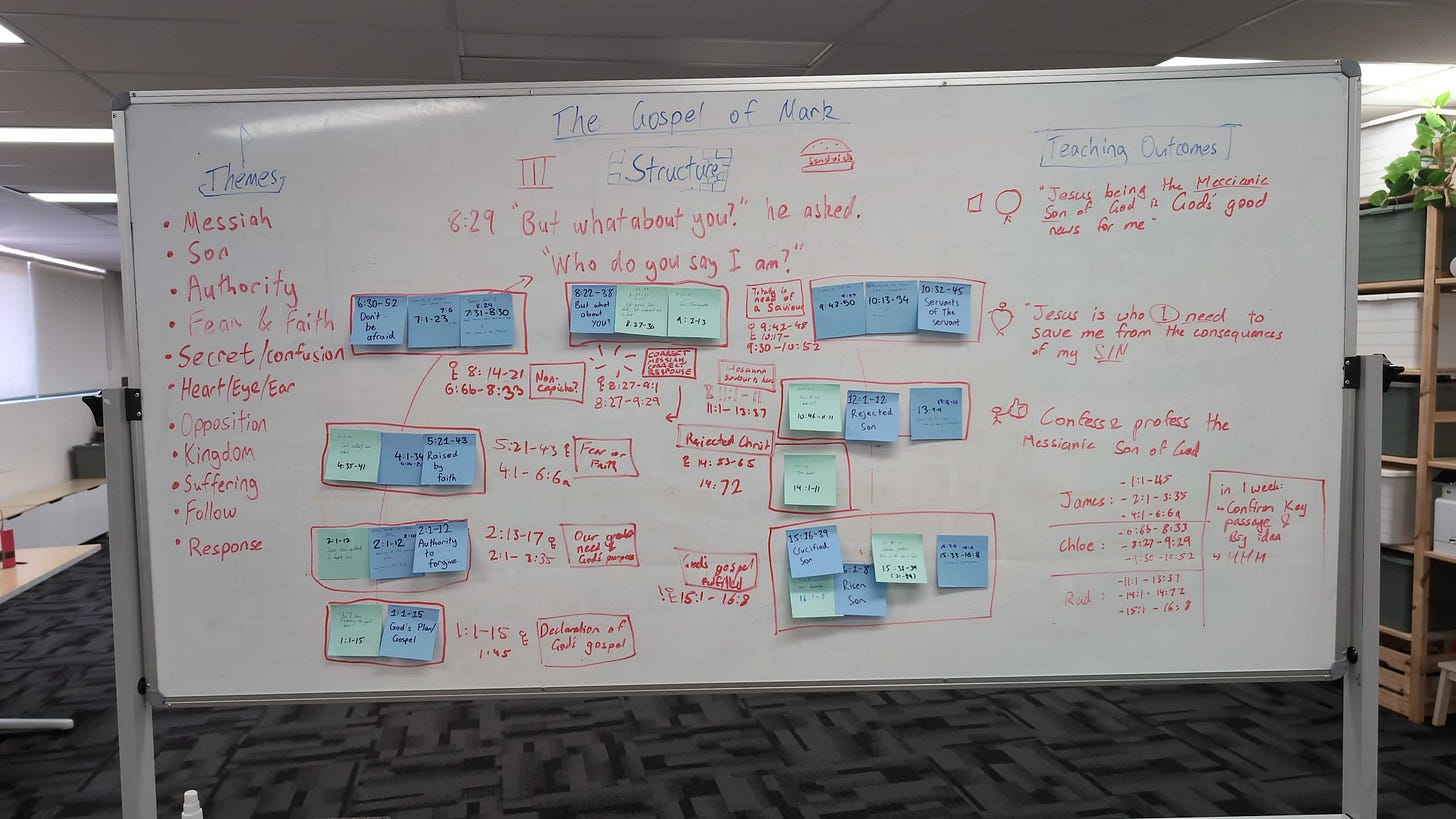 The Gospel of Mark
Structure
sandwich
8:29 "But what about you?" he asked.
"Who do you say I am?"
Themes
• Messiah
• Son
• Authority
• Fear & Faith
• Secret/confusion
• Heart/Eye/Ear
• Opposition
• Kingdom
• Suffering
• Follow
• Response
6:30-52
Don't
be
afraid
7:1-23
8:29
7:31-8:30
8:14-21
6:6b-8:33
Non-
capiche?
8:22-38
But what
about
YOU?
8:27-30
9:2-13
8:27-9:1
8:27-9:29
CORRECT
MESSIAH,
CORRECT
RESPONSE
Totally in
need of
a Saviour
9:42-48
10:17-
9:30-10:52
9:42-50
10:13-34
10:32-45
Servants
of The
servant
4:35-41
4:1-34
5:21-43
Raised
by
faith
5:21-43
4:1-6:6a
Fear or
Faith
Hosanna
11:1-11
11:1-13:37
10:46-11:11
12:1-12
Rejected
Son
13:
Rejected Christ
14:53-65
14:72
14:1-11
2:1-12
2:1-12
2:1-12
Authority
to
forgive
2:13-17
2:1-3:35
Our greatest
need &
God's purpose
God's gospel
fulfilled
15:1-16:8
15:16-39
Crucified
Son
16:1-8
6:1-8
Risen
Son
15:33-39
15:33-16:8
1:1-15
1:1-15
God's Plan/
Gospel
1:1-15
1:45
Declaration of
God's gospel
Teaching Outcomes
"Jesus being the Meccianic
Son of God is God's good
news for me"
"Jesus is who I need to
save me from the consequences
of my SIN
Confess & profess the
Messianic Son of God
James:
- 1:1-45
- 2:1-3:35
- 4:1-6:6a
Chloe:
- 6:6b-8:33
- 8:27-9:29
- 9:30-10:52
Rad:
- 11:1-13:37
- 14:1-14:72
- 15:1-16:8
in 1 week:
↳ Confirm Key
passage &
Big idea
↳ HHH